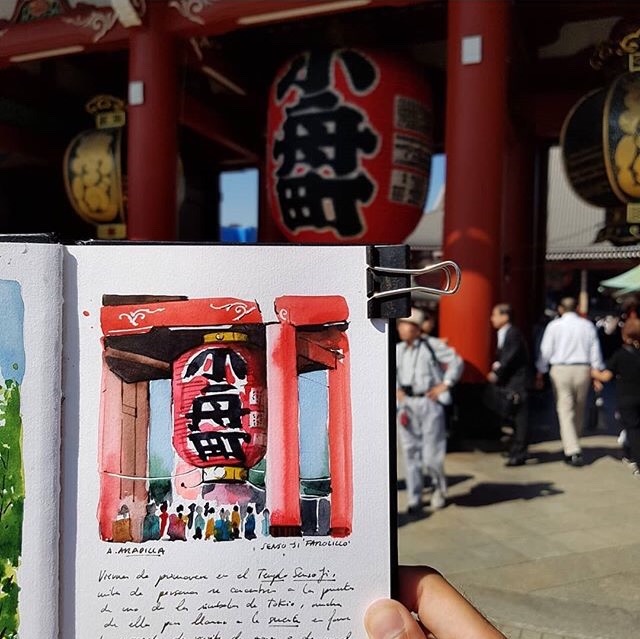 小
舟
町
小
舟
町
SENSO JI 'FAROLILLO'
Viernes de primavera en el Templo Senso Ji,
miles de personas se concentran a la puerta
de uno de los simbolos de Tokio, muchos
de ellos para llamar a la suerte en forma